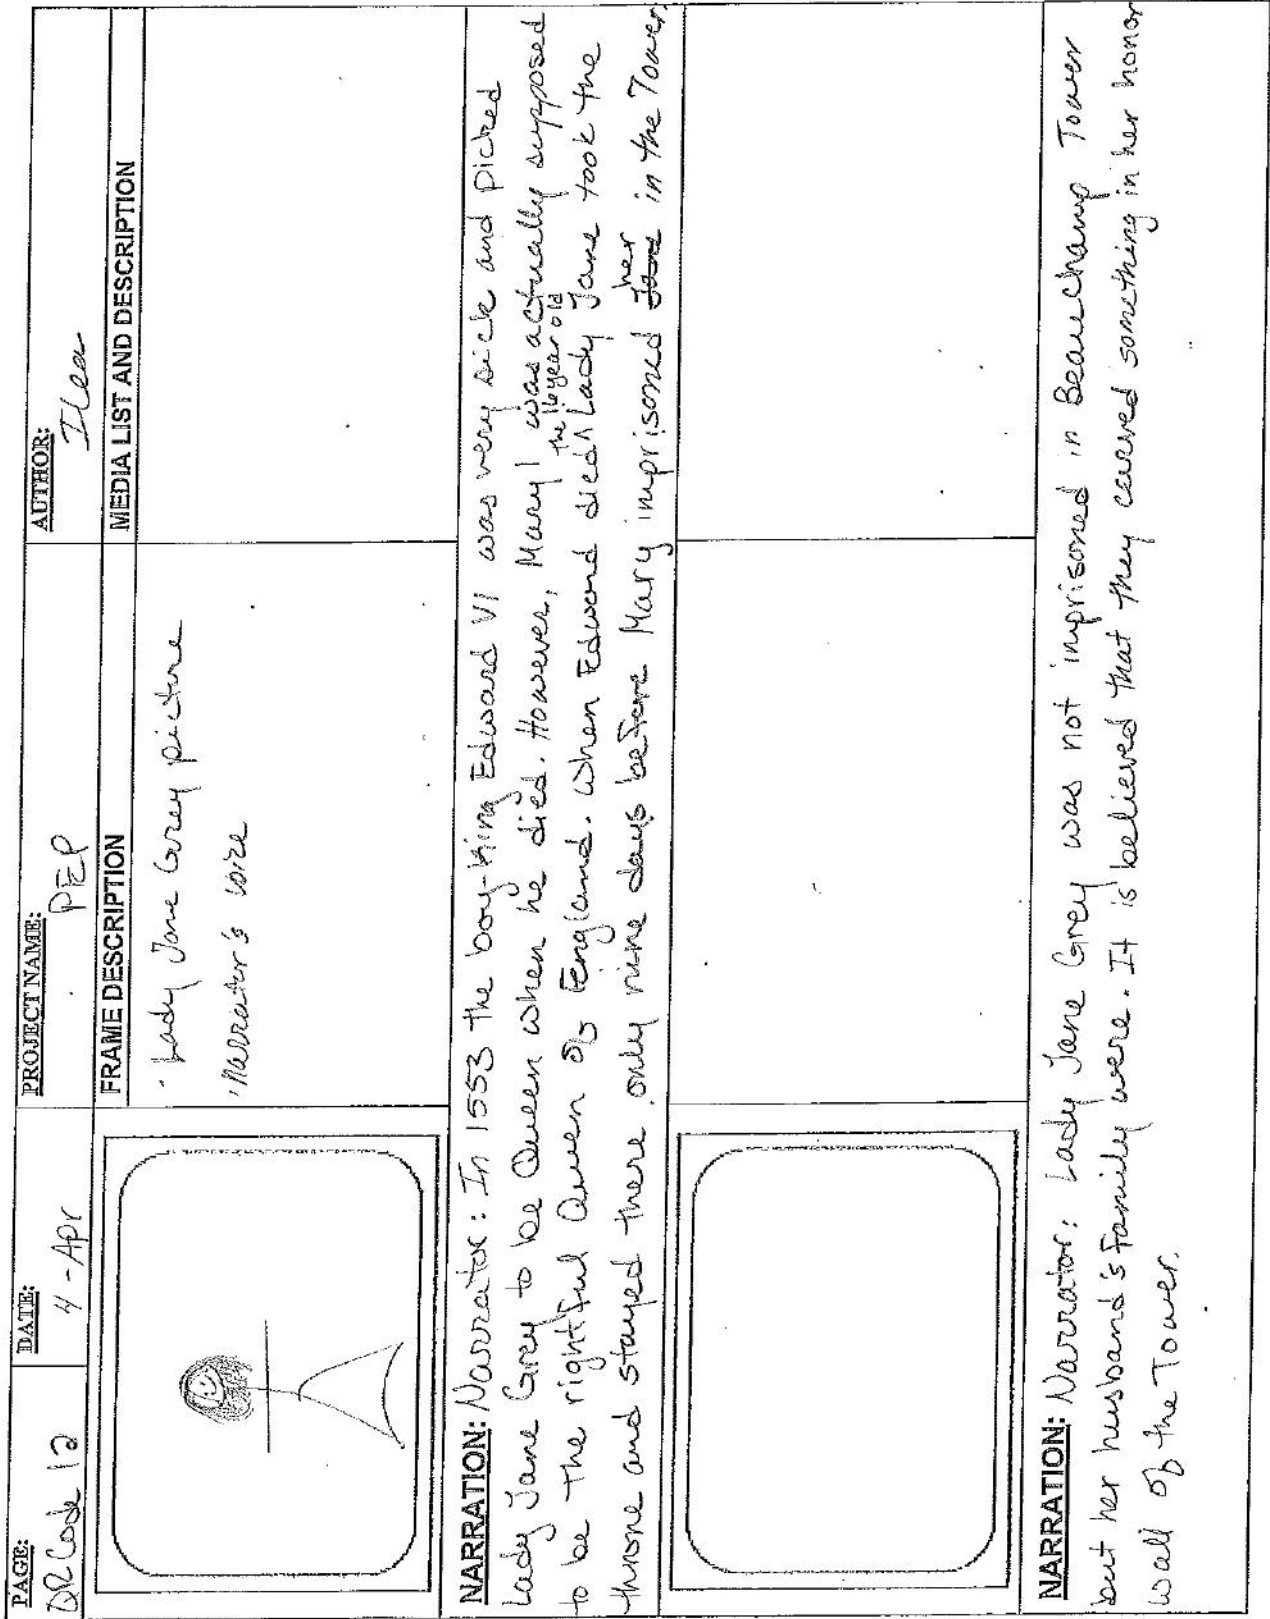 PAGE:
QR Code 12
DATE:
4-Apr
PROJECT NAME:
PEP
AUTHOR:
Ilea
FRAME DESCRIPTION
MEDIA LIST AND DESCRIPTION
· Lady Jane Grey picture
· Narrator's voice
NARRATION: Narrator: In 1553 the boy-king Edward VI was very sick and picked
Lady Jane Grey to be Queen when he died. However, Mary I was actually supposed
to be the rightful Queen of England. When Edward died ^ the 16 year old Lady Jane took the
throne and stayed there only nine days before Mary imprisoned Jane her in the Tower.
NARRATION: Narrator: Lady Jane Grey was not imprisoned in Beauchamp Tower
but her husband's family were. It is believed that they carved something in her honor
wall of the Tower.